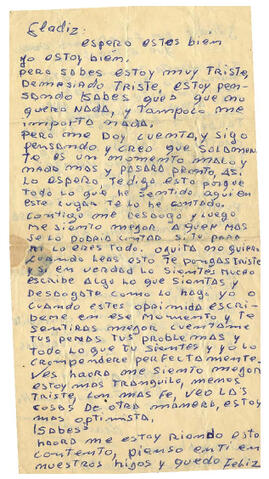 Gladiz:
espero estes bien
yo estoy bien.
pero sabes estoy muy triste,
demasiado triste, estoy pen-
sando ¿sabes que? que no
quero nada, y tampoco me
importa nada.
Pero me doy cuenta, y sigo
pensando y creo que solamen
te es un momento malo y
nada mas y pasara pronto, asi
lo espero, te digo esto porque
todo lo que he sentido aqui en
este lugar te lo he contado.
contigo me desaogo y luego
me siento mejor a quien mas
se lo podria contar si te para
mi lo eres todo. oquita no quiero
cuando leas esto te pongas triste
y si en verdad lo sientes mucho
escribe algo lo que sientas y
desaogate como lo hago yo o
cuando estes oprimida escri-
beme en ese momento y te
sentiras mejor cuentame
tus penas tus problemas y
todo lo que tu sientes y yo lo
cromprendere perfectamente.
Ves haora me siento mejor
estoy mas tranquilo, menos
triste, con mas fe, veo las
cosas de otra manera, estoy
mas optimista,
¿sabes?
haora me estoy riendo esto
contento, pienso en ti en
nuestros hijos y quedo feliz